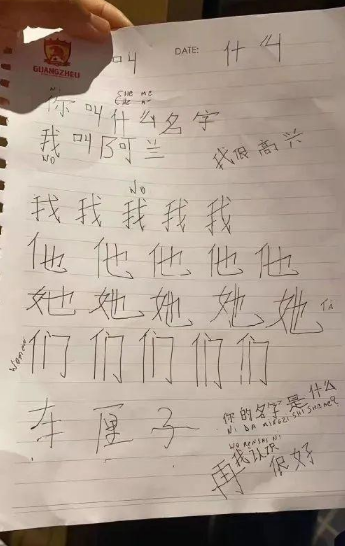 GUANGZHOU
叫 DATE: 什么
SHE ME
你叫什么名字
我叫阿兰 我很高兴
WO
WO
我 我 我 我 我
他 他 他 他 他
她 她 她 她 她 TA
们 们 们 们 们
WOMEN
车厘子
你的名字是什么
我认识
再 很好